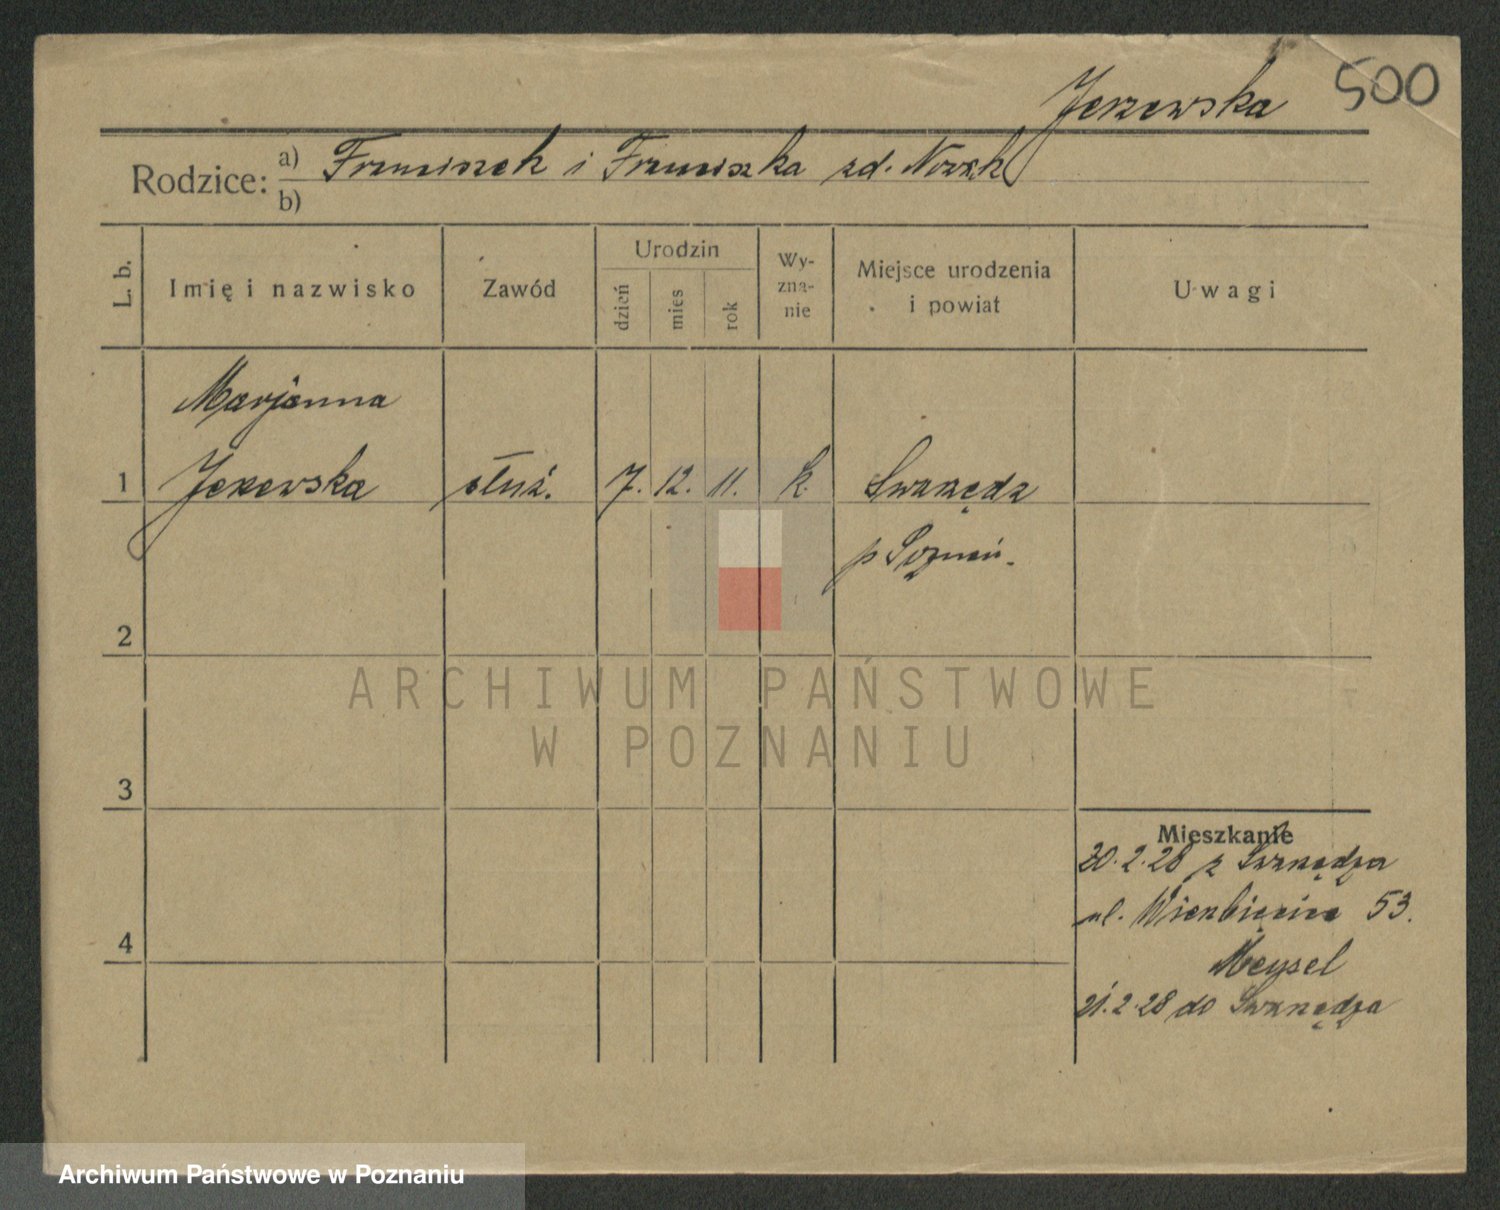 Jerzewska 500
Rodzice: a) Franciszek i Franciszka zd. Nowak
b)
L. b. Imię i nazwisko Zawód Urodzin dzień mies rok Wy-zna-nie Miejsce urodzenia i powiat Uwagi
Marjanna
1 Jerzewska służ. 7. 12. 11. k. Swarzędz
p Poznań.
2
ARCHIWUM PAŃSTWOWE
W POZNANIU
3
Mieszkanie
20.2.28 z Swarzędza
ul. Wierzbięcice 53.
4
Meysel
21.2.28 do Swarzędza
Archiwum Państwowe w Poznaniu